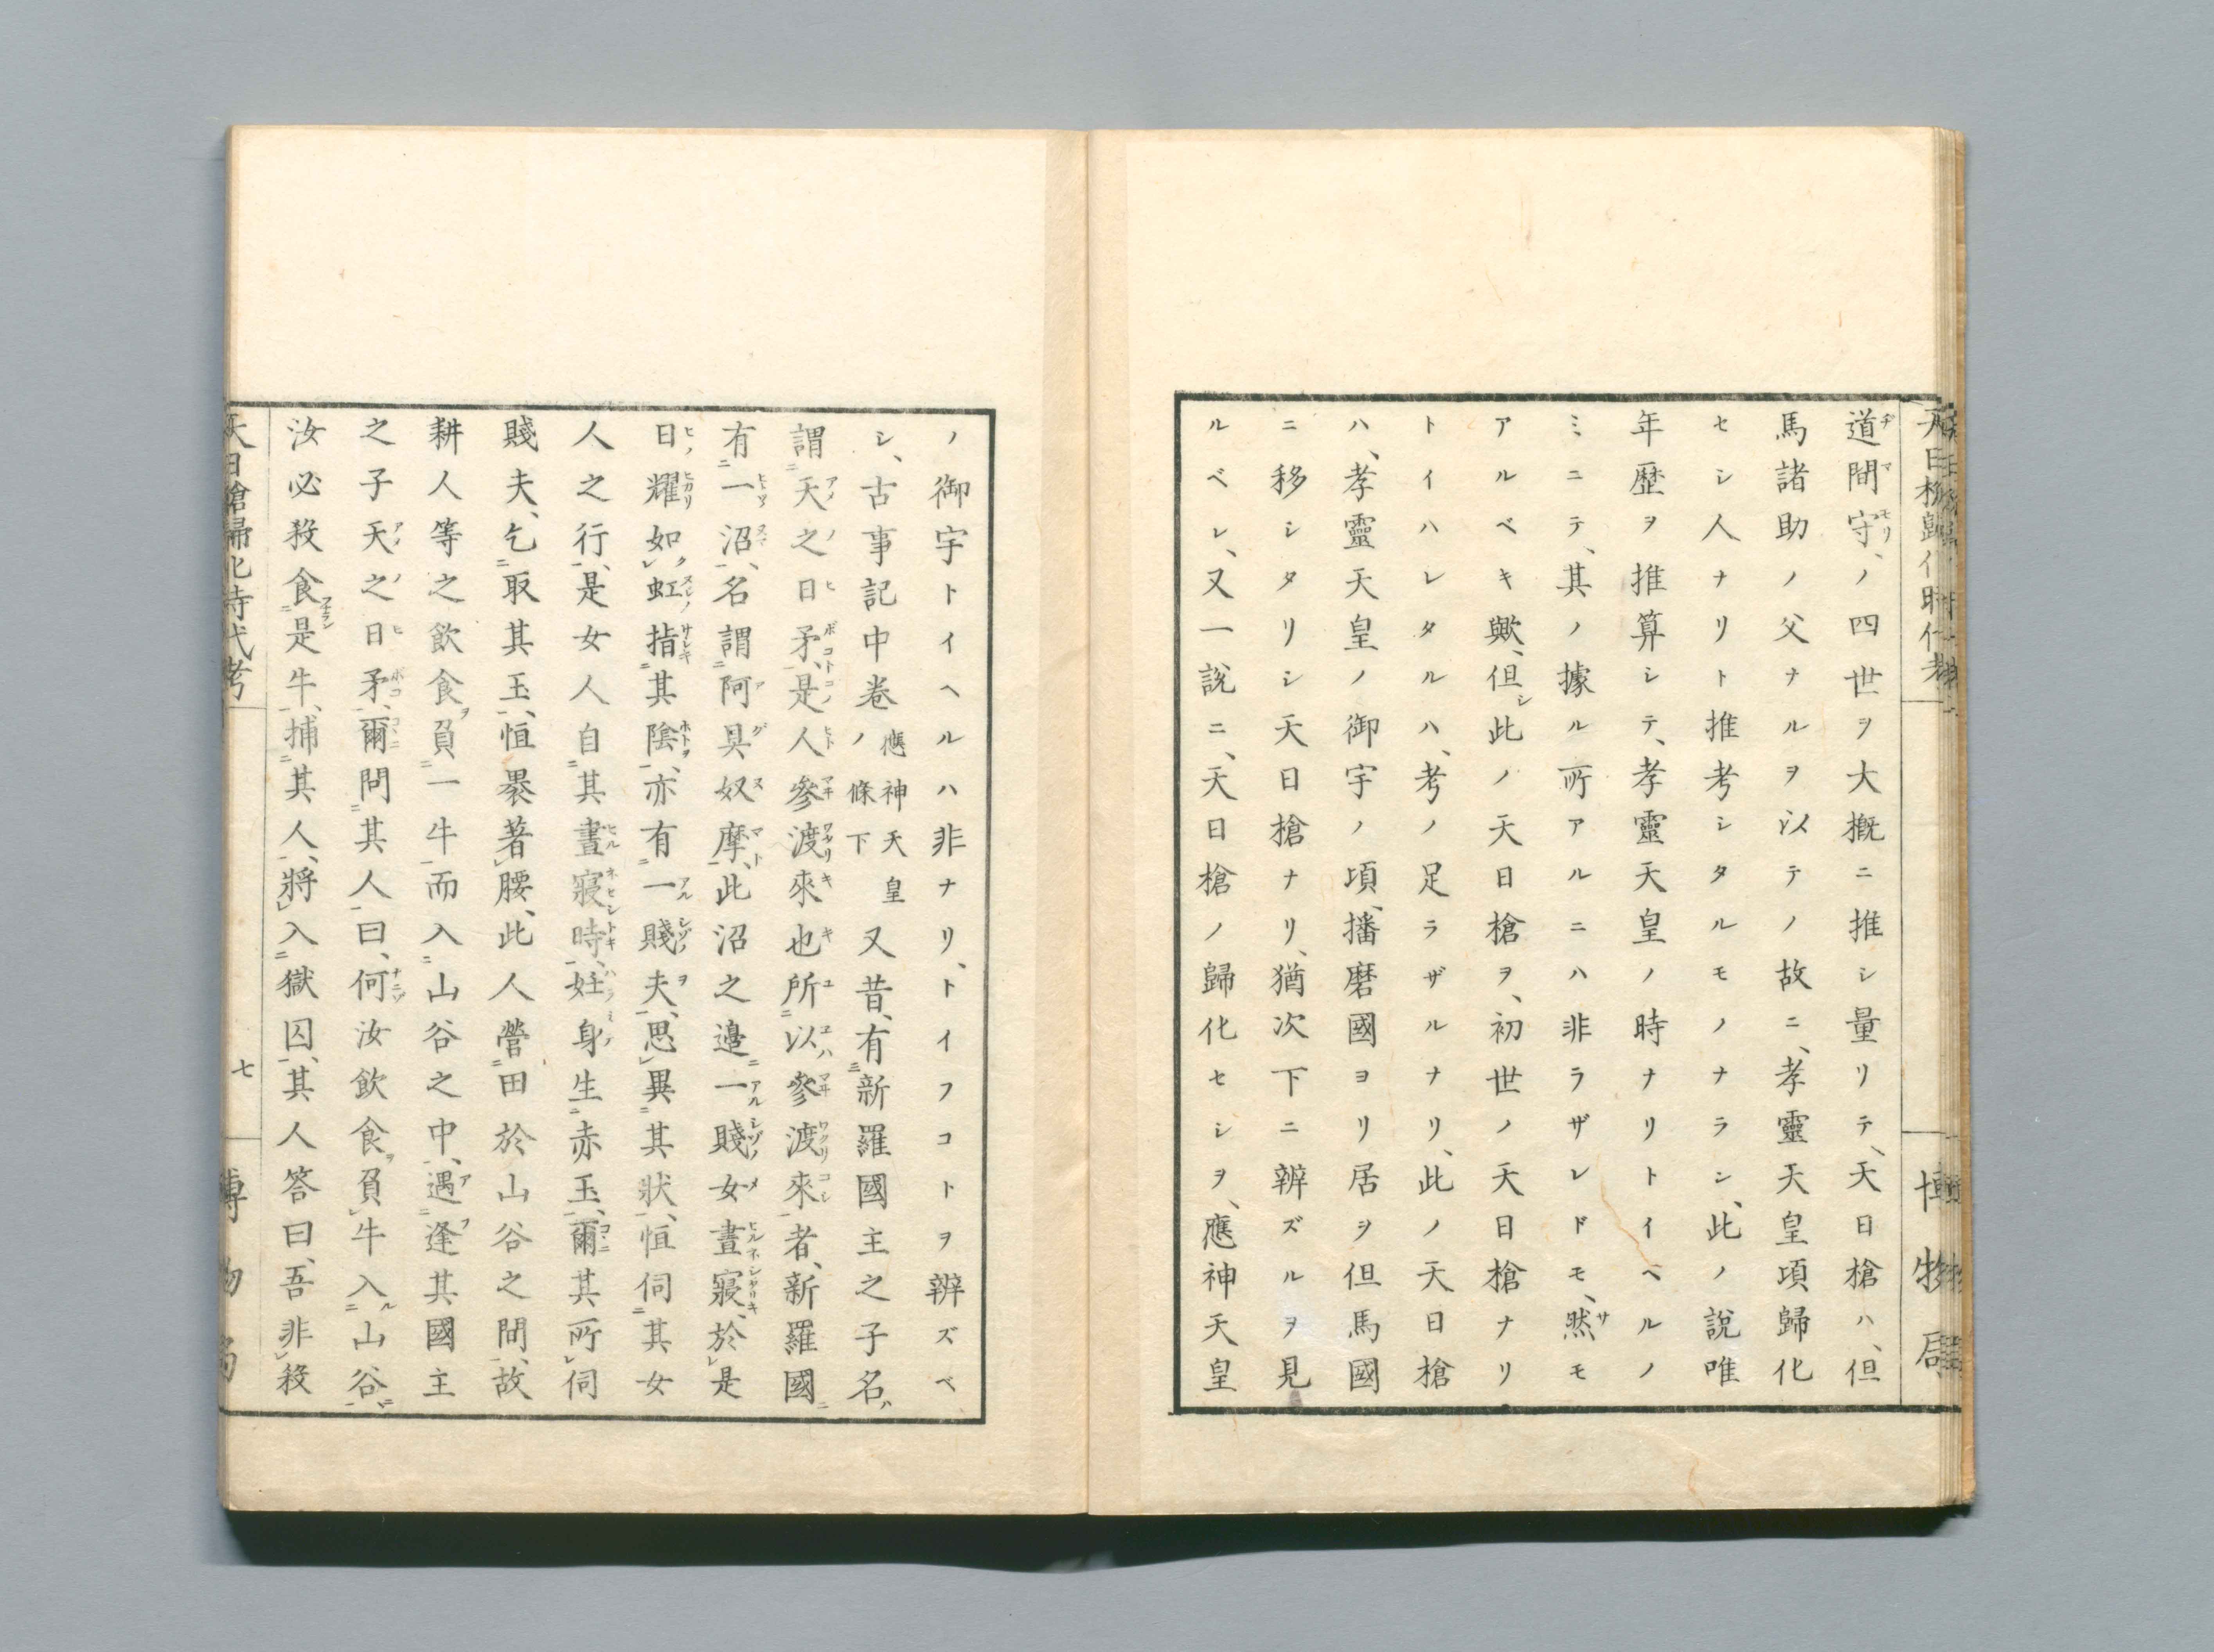 道間守、ノ四世ヲ大概ニ推シ量リテ、天日槍ハ、但
馬諸助ノ父ナルヲ以テノ故ニ、孝靈天皇頃歸化
セシ人ナリト推考シタルモノナラシ、此ノ說唯
年歷ヲ推算シテ、孝靈天皇ノ時ナリトイヘルノ
ミニテ、其ノ據ル所アルニハ非ラザレドモ、然モ
アルベキ歟、但シ此ノ天日槍ヲ、初世ノ天日槍ナリ
トイハレタルハ、考ノ足ラザルナリ、此ノ天日槍
ハ、孝靈天皇ノ御宇ノ頃、播磨國ヨリ居ヲ但馬國
ニ移シタリシ天日槍ナリ、猶次下ニ辨ズルヲ見
ルベシ、又一說ニ、天日槍ノ歸化セシヲ、應神天皇
ノ御宇トイヘルハ非ナリ、トイフコトヲ辨ズベ
シ、古事記中卷應神天皇ノ條下又昔、有新羅國主之子名ハ
謂天之日矛、是人參渡來也所以參渡來者、新羅國
有一沼、名謂阿具奴摩、此沼之邉一賤女晝寢、於是
日耀如虹指其陰、亦有一賤夫、思異其狀、恒伺其女
人之行、是女人自其晝寢時、妊身生赤玉、爾其所伺
賤夫、乞取其玉、恒褁著腰、此人營田於山谷之間、故
耕人等之飮食負一牛而入山谷之中、遇逢其國主
之子天之日矛、爾問其人曰、何汝飮食負牛入山谷
汝必殺食是牛、捕其人、將入獄囚、其人答曰、吾非殺
天日槍歸化時代考
七
博物局